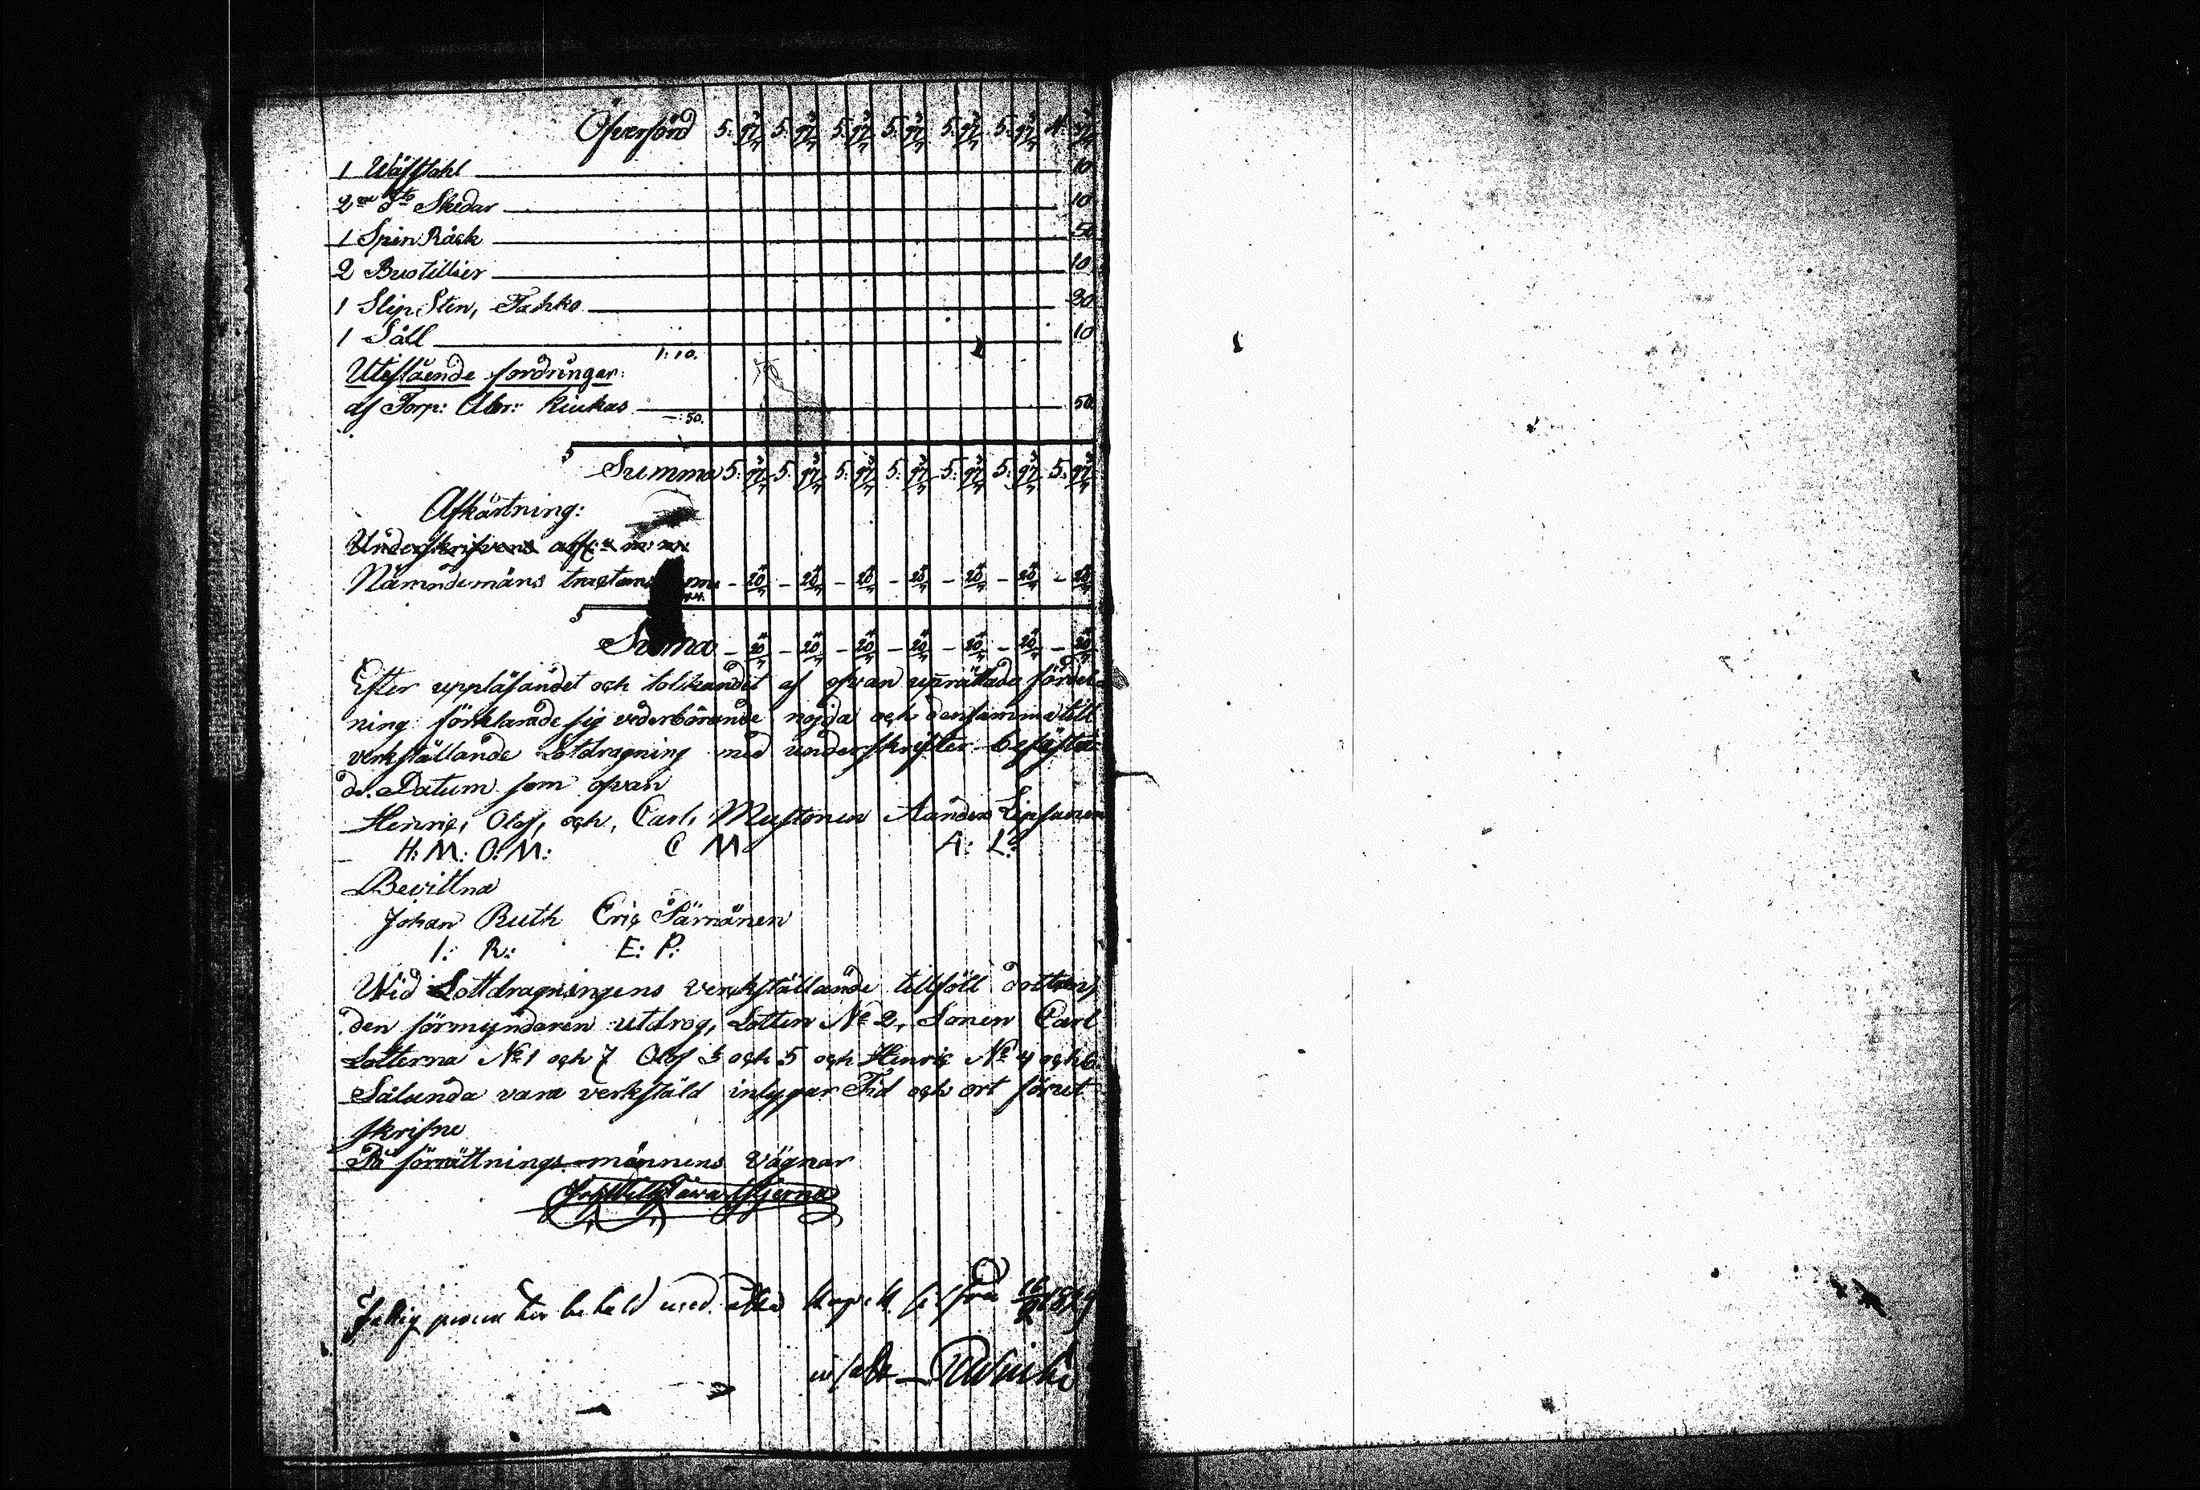 Öfverförd 5. 92 3/7 5. 92 3/7 5. 92 3/7 5. 92 3/7 5. 92 3/7 5. 92 3/7 4.
1 Wäfstahl 10
2ne Dto Skedar 10
1 Spin Råck 50
2 Butellier 10
1 Slip Sten, Tahko 30
1 Såll 10
1: 10.
Utestående fordringar:
af Torp: Abr: Kiukas 50
—: 50.
Summa 5. 92 3/7 5. 92 3/7 5. 92 3/7 5. 92 3/7 5. 92 3/7 5. 92 3/7 5. 92 3/7
Afkårtning:
Underskrifvens arf: m: m:
Nämndemäns - 20 4/7 - 20 4/7 - 20 4/7 - 20 4/7 - 20 4/7 - 20 4/7 - 20 4/7
Summa - 20 4/7 - 20 4/7 - 20 4/7 - 20 4/7 - 20 4/7 - 20 4/7 - 20 4/7
Efter uppläsandet och tolkandet af ofvan upprättade fördel-
ning förklarade sig vederbörande nöjda och densamma till
verkställande Lotdragning med underskrifter befäste-
de. Datum som ofvan
Henric, Olof, och, Carl, Mustonen Anders Lipsanen
H: M: O: M: C M A: L:
Bevittna
Johan Ruth Eric Pärnänen
I: R: E: P:
Wid Lottdragningens verkställande tillföll dottren,
den förmyndaren utdrog, Lotten No 2, Sonen Carl
Lotterna No 1 och 7 Olof 3 och 5 och Henric No 4 och 6.
Sålunda vara verkstäld intygar Tid och ort förut
skrifne
På förrättnings männens vägnar